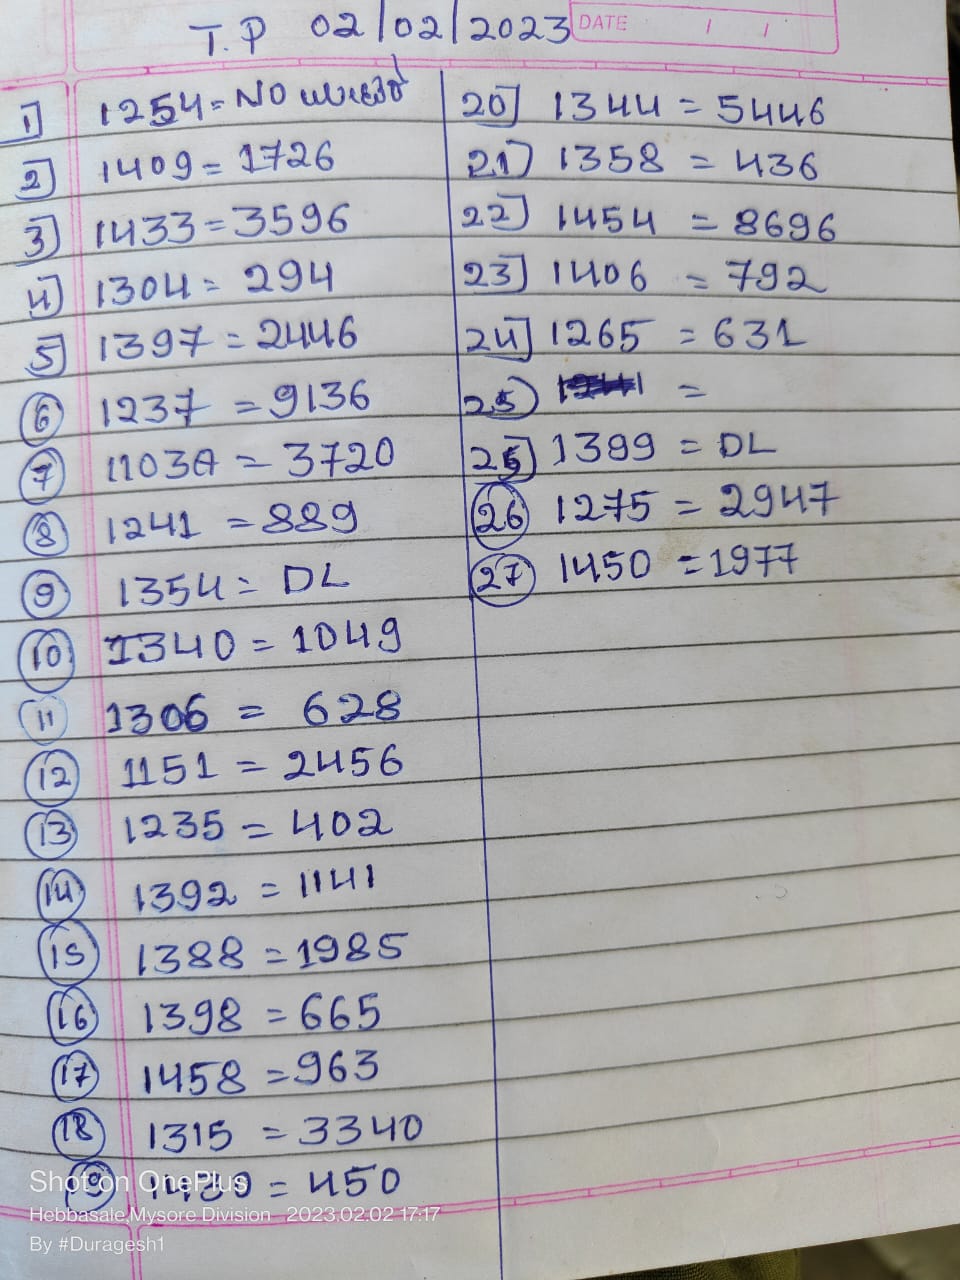 T.P 02/02/2023
DATE / /
1] 1254 = NO
2] 1409 = 1726
3] 1433 = 3596
4] 1304 = 294
5] 1397 = 2446
6 1237 = 9136
7 = 3720
8 1241 = 889
9 1354 = DL
10 1340 = 1049
11 1306 = 628
12 1151 = 2456
13 1235 = 402
14 1392 = 1141
15 1388 = 1985
16 1398 = 665
17 1458 = 963
18 1315 = 3340
19 = 450
20] 1344 = 5446
21] 1358 = 436
22] 1454 = 8696
23] 1406 = 792
24] 1265 = 631
25) =
25] 1399 = DL
26 1275 = 2947
27 1450 = 1977
Shot on OnePlus
Hebbasale,Mysore Division 2023.02.02 17:17
By #Duragesh1